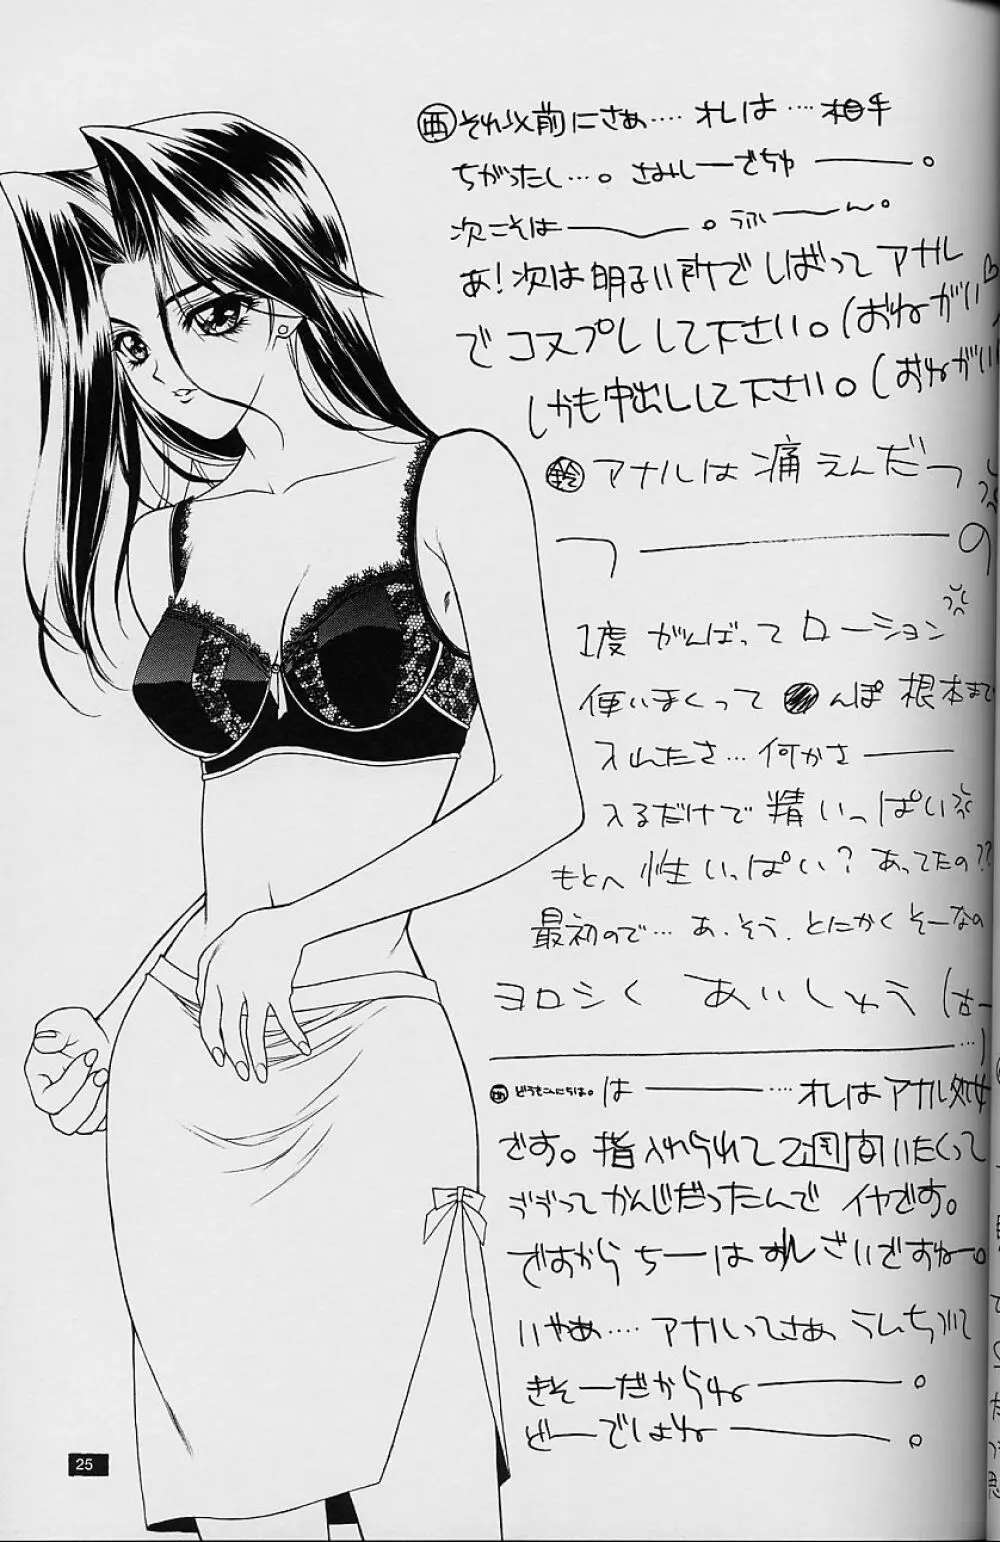 西 それ以前にさぁ‥‥オレは‥‥相手
ちがったし…。さみしーでちゅ――。
次こそは――。うふーん。
あ!次は明るい所でしばってアナル
でコスプレして下さい。(おねがい♡
しかも中出しして下さい。(おねがい
鈴 アナルは痛えんだっ
つ――の
1度がんばってローション
使いまくって●んぽ根本まで
入れたさ…何かさ――
入るだけで精いっぱい
もとへ性いっぱい?あってたの??
最初ので…あ、そう、とにかくそーなの
ヨロシく あいしゅう
西 どうもこんにちは。は――‥‥オレはアナル処女
です。指入れられて2週間いたくって
ヴヴってかんじだったんでイヤです。
ですから ちーは ざいですねー。
いやぁ‥‥アナルってさぁ うんちついて
きそーだからね――。
どーでしょね――。
25